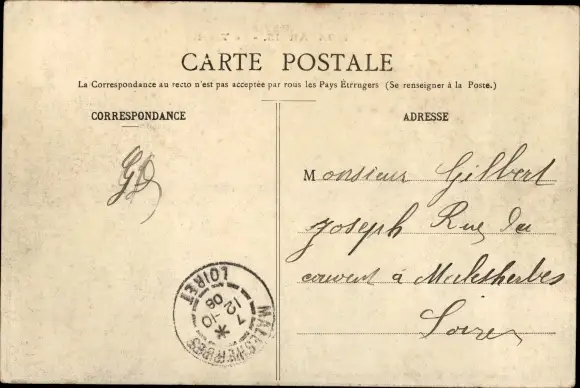 CARTE POSTALE
La Correspondance au recto n'est pas acceptée par tous les Pays Étrangers (Se renseigner à la Poste.)
CORRESPONDANCE
ADRESSE
GD
Monsieur Gilbert
Joseph Rue du
couvent à Malesherbes
Loiret
MALESHERBES
LOIRET
7 12-10
08